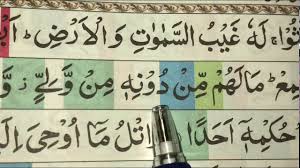 ثُوْا ۚ لَهٗ غَيْبُ السَّمٰوٰتِ وَ الْاَرْضِ ؕ اَبْ
مِعْ ؕ مَا لَهُمْ مِّنْ دُوْنِهٖ مِنْ وَّلِيٍّ ۫ وَّ
حُكْمِهٖۤ اَحَدًا اتْلُ مَاۤ اُوْحِیَ اِلَیْ